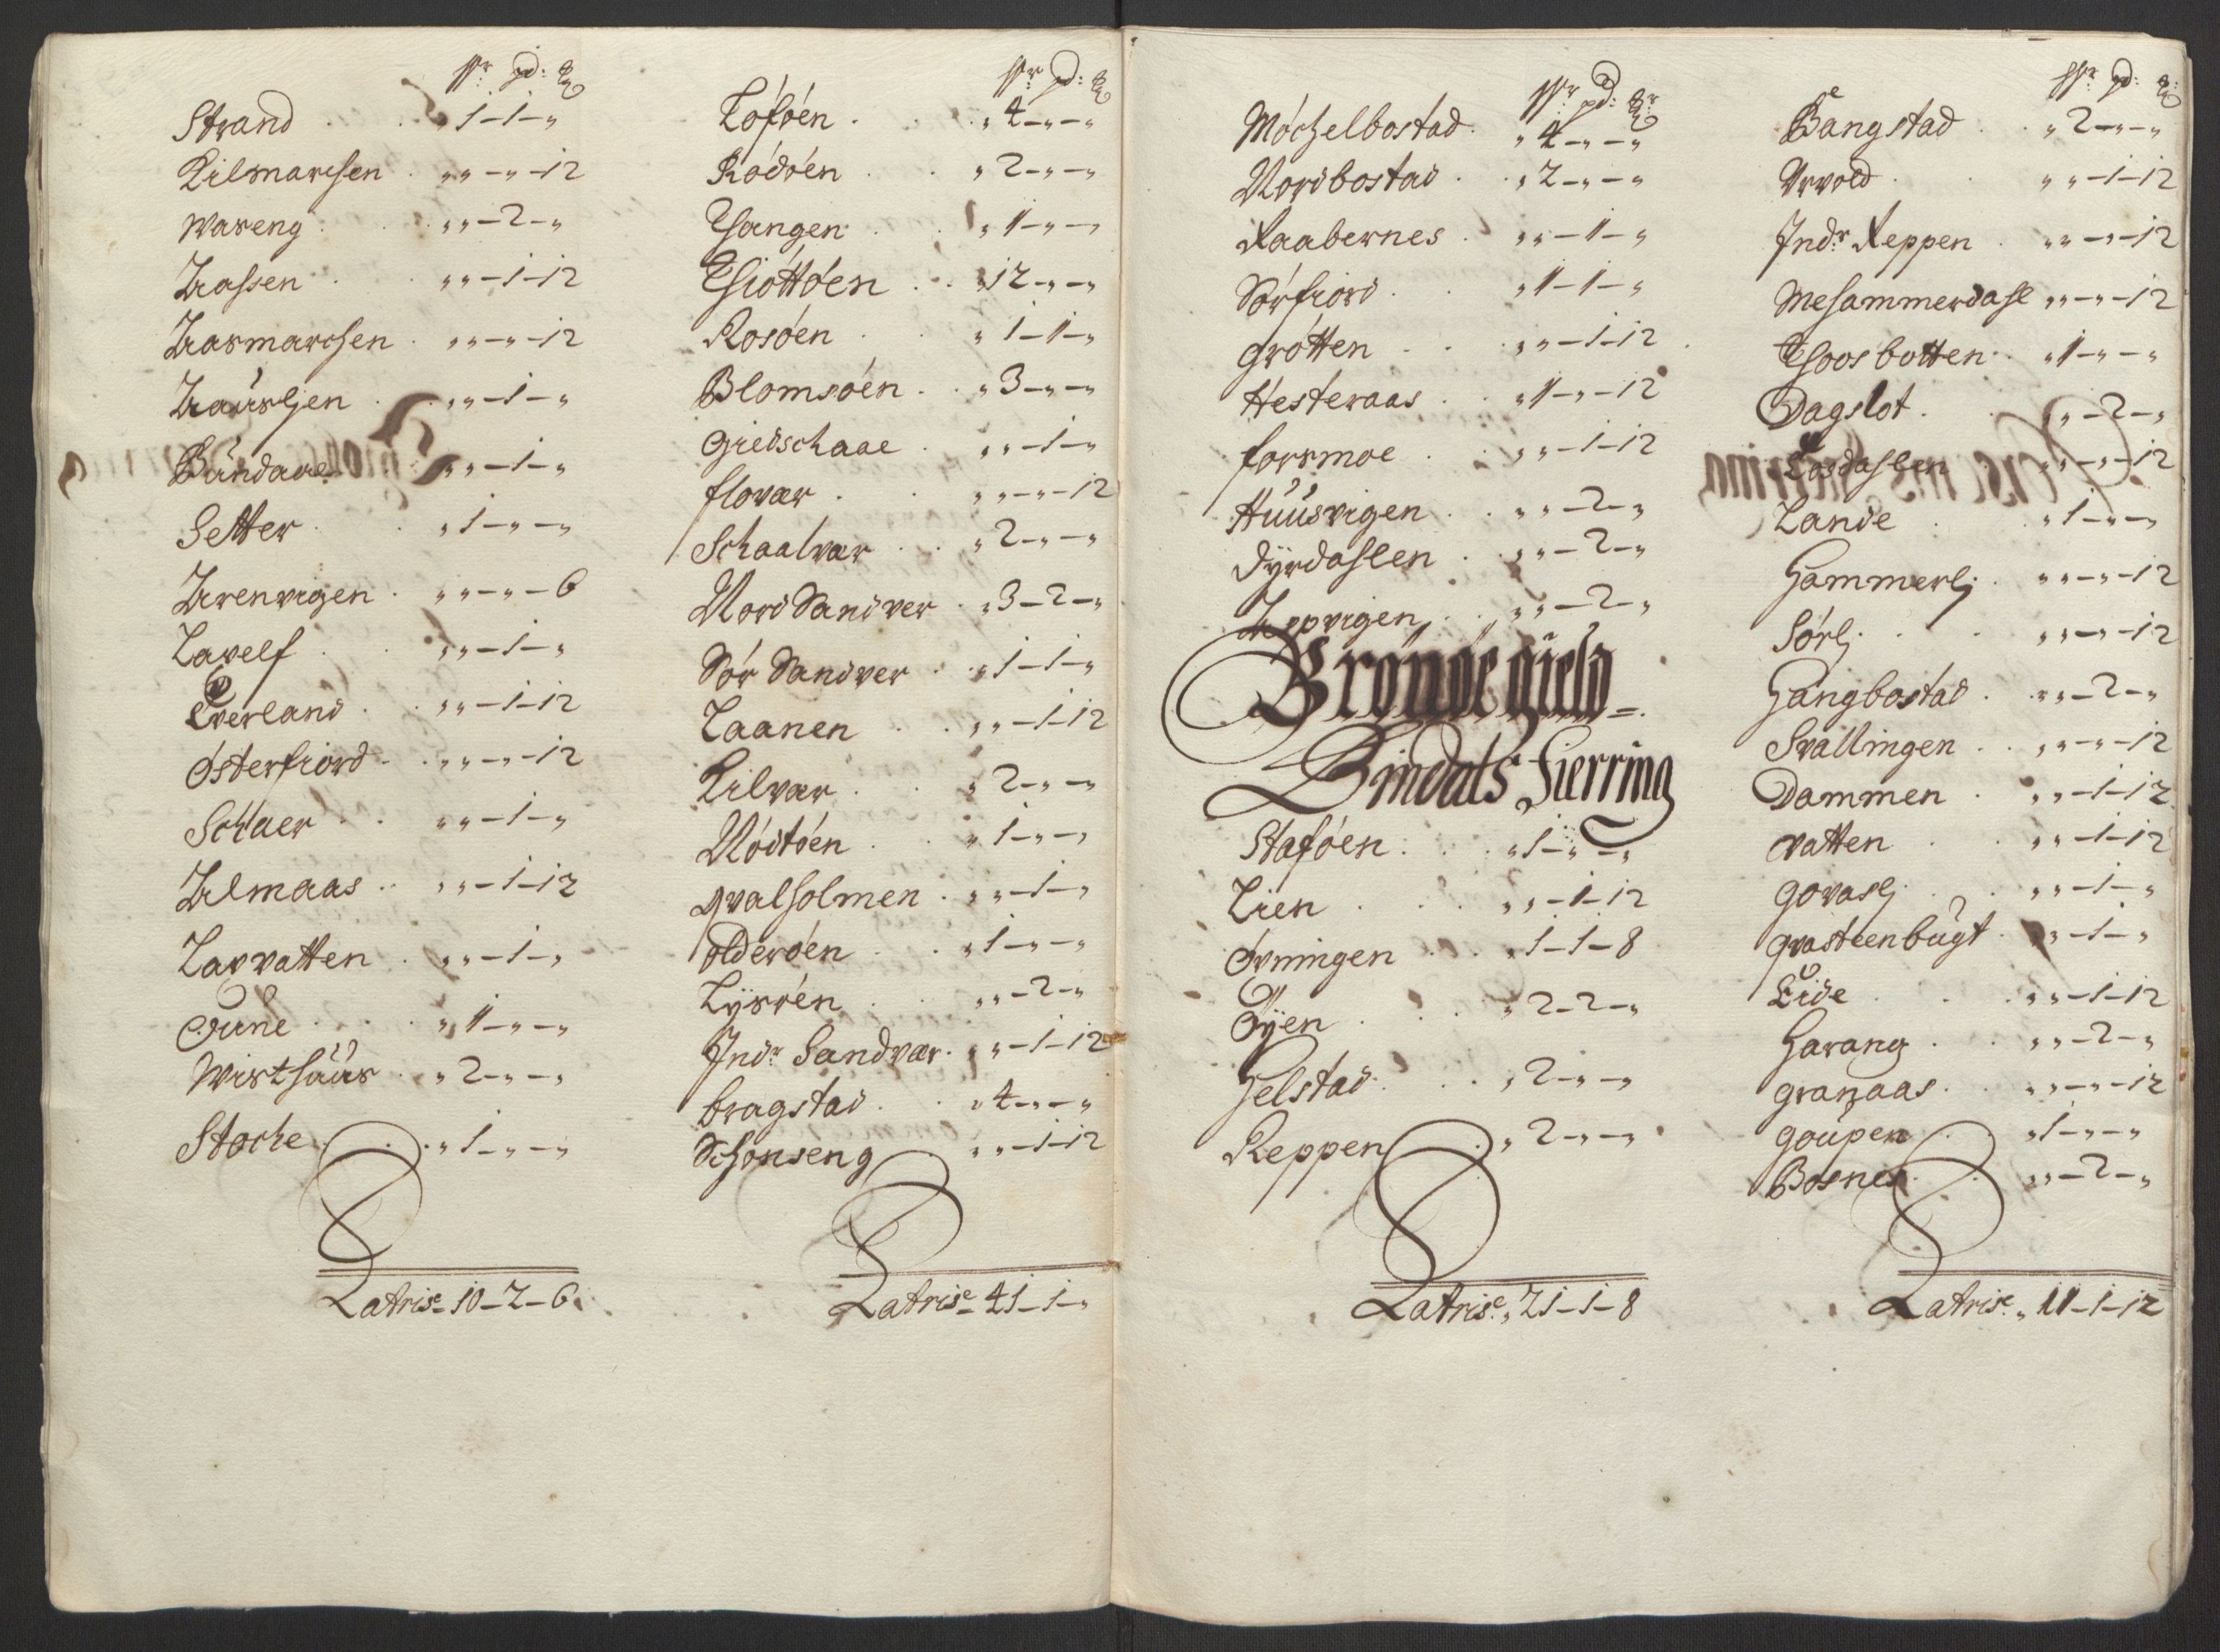 Strand . . „ 1 – 1 – „
Kilmarchen . „ „ – „ – 12
Wareng . . „ „ – 2 – „
Aassen . . „ „ – 1 – 12
Aasmarchen . „ „ – „ – 12
Aauslien . „ „ – 1 – „
Bundaae . „ „ – 1 – „
Setter . . „ 1 – „ – „
Arenvigen . „ „ – „ – 6
Lavelf . . „ „ – 1 – „
Everland . . „ „ – 1 – 12
Østerfiord . „ „ – „ – 12
Schaer . . „ „ – 1 – „
Almaas . . „ „ – 1 – 12
Lavvatten . „ „ – 1 – „
Tune . . . „ 1 – „ – „
Wisthuus . „ 2 – „ – „
Stoche . . „ 1 – „ – „
Latris – 10 – 2 – 6
Lófóen . . „ 4 – „ – „
Ródóen . . „ 2 – „ – „
Thangen . . „ 1 – „ – „
Thióttóen . . „ 12 – „ – „
Rosóen . . „ 1 – 1 – „
Blomsóen . . „ 3 – „ – „
Giedschaae . „ „ – 1 – „
flovær . . „ „ – „ – 12
Schaalvær . . „ 2 – „ – „
Nord Sandver . „ 3 – 2 – „
Sór Sandver . . „ 1 – 1 – „
Laanen . . „ „ – 1 – 12
Kilvær . . „ 2 – „ – „
Nóitóen . . „ 1 – „ – „
Qvalholmen . „ „ – 1 – „
olderóen . . „ 1 – „ – „
Lysóen . . „ „ – 2 – „
Indr Sandvær . „ „ – 1 – 12
bragstad . . „ 4 – „ – „
Schonseng . . „ „ – 1 – 12
Latris – 41 – 1 – „
Móchelbostad . „ 4 – „ – „
Nordbostad . . „ 2 – „ – „
Raabernes . „ „ – 1 – „
Sórfiord . . „ 1 – 1 – „
grótten . . „ „ – 1 – 12
Hesteraas . . „ 1 – „ – 12
forsmoe . . „ „ – 1 – 12
Huusvigen . . „ „ – 2 – „
dyrdahlen . „ „ – 2 – „
Zepvigen . „ „ – 2 – „
Brónóe gield
Bindals Fierring
Stafóen . . „ 1 – „ – „
Lien . . . „ „ – 1 – 12
Óvningen . . „ 1 – 1 – 8
Øyen . . . „ 2 – 2 – „
Helstad . . „ 2 – „ – „
Reppen . „ 2 – „ – „
Latris „ 21 – 1 – 8
Bangstad . . „ 2 – „ – „
Urvold . . „ „ – 1 – 12
Indr Reppen . „ „ – „ – 12
Mehammerdahl „ „ – „ – 12
Thoosbotten . „ 1 – „ – „
Dagslot . . „ „ – 2 – „
„ „ – „ – 12
Lande . . „ 1 – „ – „
Hammerlj . „ „ – „ – 12
Sórlj . . „ „ – „ – 12
Hangbostad . „ „ – 2 – „
Svallingen . . „ „ – „ – 12
Dammen . „ „ – 1 – 12
vatten . . „ „ – 1 – 12
govaslj . . „ „ – 1 – „
qvasteenbugt . „ „ – 1 – „
Eide . . . „ „ – 1 – 12
Harang . . „ „ – 2 – „
granaas . . „ „ – „ – 12
goupen . . „ 1 – „ – „
Bosnes . . „ „ – 2 – „
Latris „ 11 – 1 – 12